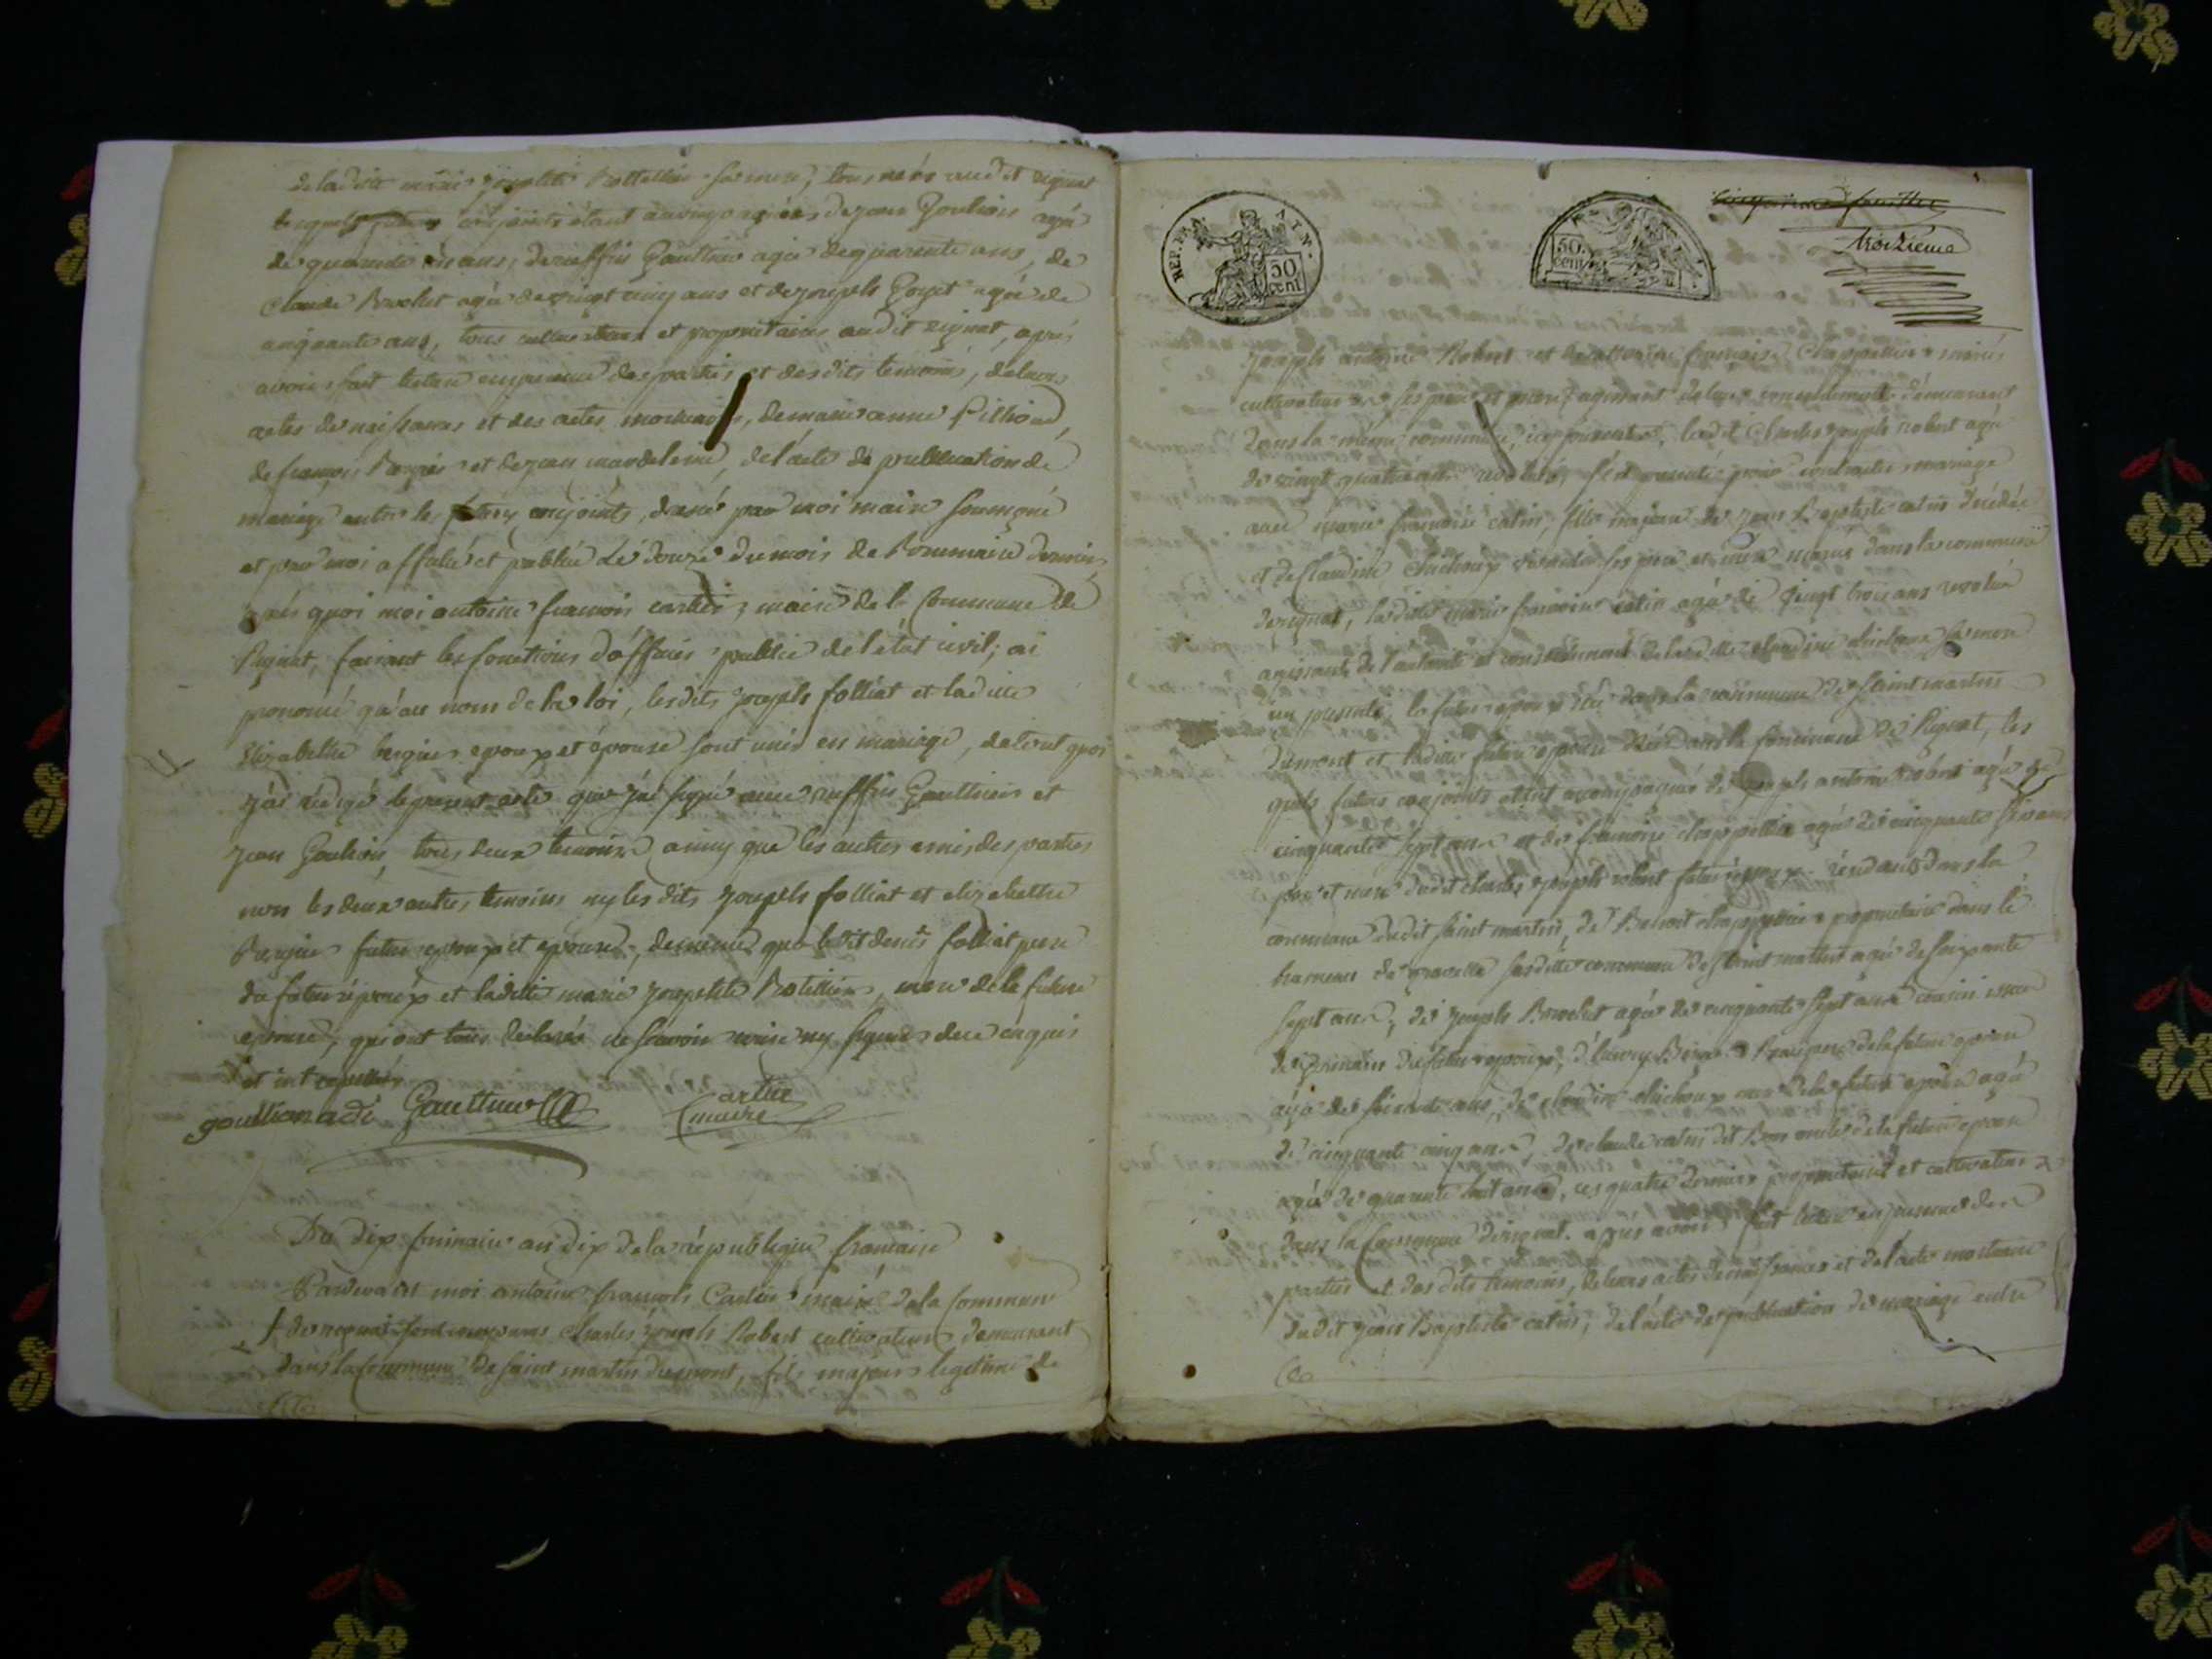 de laditte marie josephte Rottellier sa mere, tous nés audit rignat
lesquels futurs conjoints étant accompagnés de jean Goulion agé
de quarante six ans, de ruffin Gaulthier agé de quarante ans, de
Claude Brochet agé de vingt cinq ans et de joseph Goyet agé de
cinquante ans, tous cultivateurs et proprietaires audit rignat, après
avoir fait lecture en presence des parties et desdits temoins, de leurs
actes de naissances et des actes mortuaires, de marie anne Pithiou,
de françois Bergier et de jean mandeleine, de l'acte de publication de
mariage entre les futurs conjoints, dressé par moi maire soussigné
et par moi affiché et publié le douze du mois de Brumaire dernier,
après quoi moi antoine françois cartier, maire de la Commune de
Rignat, faisant les fonctions d'officier public de l'état civil, ai
prononcé qu'au nom de la loi, lesdits joseph folliat et laditte
Elizabethe bergier epoux et épouse sont unis en mariage, de tout quoi
j'ai rédigé le present acte que j'ai signé avec ruffin Gaulthier et
jean Goulion, tous deux temoins ainsy que les autres amis des parties
non les deux autres temoins ny les dits joseph folliat et elizabethe
Bergier futur epoux et epouse, de meme que ledit denis folliat pere
du futur époux et laditte marie josephte Rotellier, mere de la future
epouse, qui ont tous declarés ne sçavoir ecrire ny signer de ce enquis
et interpellés
goullion adi Gaulthier Cartier
maire
Du dix frimaire an dix de la république française
Pardevant moi antoine françois Cartier maire de la Commune
de rignat sont comparus Charles joseph Robert cultivateur demeurant
dans la Commune de saint martin dumont, fils majeur legitime de
REP. FRA. AIN.
50
cent
50.
cent
troizieme
joseph antoine Robert et de françoise Chappellier mariés
cultivateurs ses pere et mere, agissant de leur consentement demeurant
dans la même commune, icy presents, ledit Charles joseph robert agé
de vingt quatre ans revolus, s'est presenté pour contracter mariage
avec marie françoise catin, fille majeure de jean Baptiste catin décédé
et de Claudine Chichoux vivante ses pere et mere mariés dans la commune
de rignat, laditte marie françoise catin agée de vingt trois ans revolus
agissante de l'autorité et consentement de laditte claudine chichoux sa mere
icy presente, le futur epoux né dans la commune de saint martin
dumont et laditte future epouse née dans la Commune de Rignat, les
quels futurs conjoints étant accompagnés de joseph antoine robert agé de
cinquante sept ans et de françoise chappellier agée de cinquante six ans
pere et mere dudit charles joseph robert futur epoux residants dans la
commune dudit saint martin, de Benoit chappellier proprietaire dans le
hameau de gravelle susditte commune de saint martin agé de soixante
sept ans, de joseph Brochet agé de cinquante sept ans cousin issu
de germain du futur epoux, de la future epouse
agé de soixante ans, de claudine chichoux mere de la future epouse agée
de cinquante cinq ans, de claude catin dit Bon oncle de la future epouse
agé de quarante huit ans, ces quatre derniers proprietaires et cultivateurs
dans la Commune de rignat. après avoir fait lecture en presence des
parties et des dits temoins, de leurs actes de naissances et de l'acte mortuaire
dudit jean Baptiste catin, de l'acte de publication de mariage entre